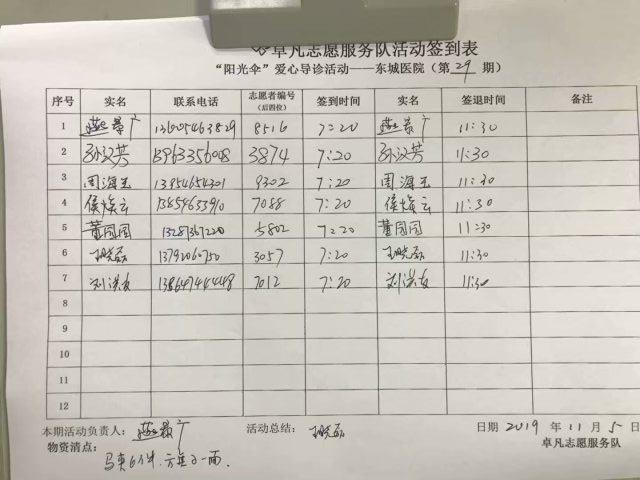 卓凡志愿服务队活动签到表
“阳光伞”爱心导诊活动——东城医院（第29期）
序号 实名 联系电话 志愿者编号（后四位） 签到时间 实名 签退时间 备注
1 8516 7:20 11:30
2 孙汉芳 3874 7:20 孙汉芳 11:30
3 周海玉 13954654301 9302 7:20 周海玉 11:30
4 侯焕云 13854633910 7088 7:20 侯焕云 11:30
5 董园园 5802 7:20 董园园 11:30
6 13792060750 3057 7:20 11:30
7 刘洪友 7012 7:20 刘洪友 11:30
8
9
10
11
12
本期活动负责人： 活动总结： 日期 2019 年 11 月 5 日
物资清点： 卓凡志愿服务队
马夹6件